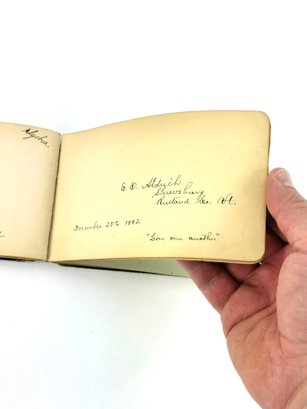 E. D. Aldrich
Shrewsbury
Rutland Co. Vt.
December 25th, 1882.
"Love one another"